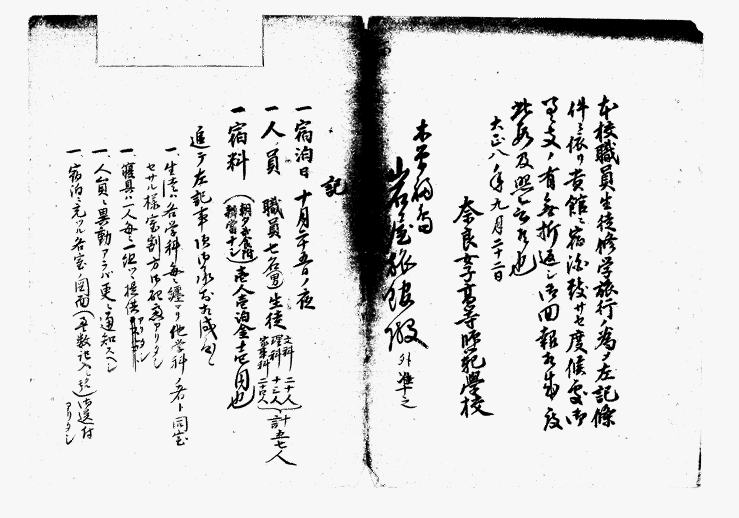 本校職員生徒修学旅行ノ為メ左記條
件ニ依リ貴館ニ宿泊致サセ度候處御
差支ノ有無折返シ御回報相成度
此段及照会候也
大正八年九月二十二日
奈良女子高等師範學校
木曽福島
岩屋旅館 御中
外準之
記
一 宿泊日 十月二十五日ノ夜
一 人員 職員七名(男)生徒 文科 二十人 理科 十三人 家事科 二十四人 計五七人
一 宿料 (朝夕弐食付 辨當ナシ)壱人壱泊金壱円也
追テ左記事項御承知相成度
一、生徒ハ各学科毎ニ纏マリ他学科ノ者ト同室
セサル様室割方御配意アリタシ
一、寝具ハ二人毎ニ一組ヅツ提供アリタシ
一、人員ニ異動アラバ更ニ通知スベシ
一、宿泊ニ充ツル各室ノ図面(平数記入ノモノ)御送付
アリタシ